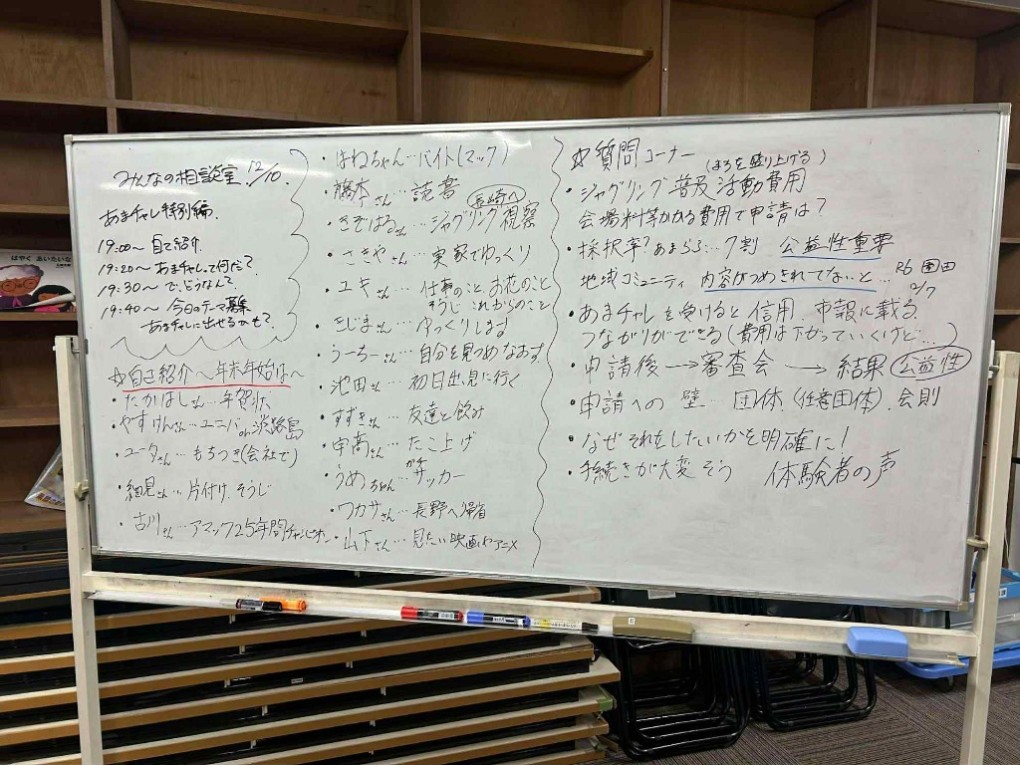 みんなの相談室 12/10.
あまチャレ特別編.
19:00〜 自己紹介
19:20〜 あまチャレって何だ?
19:30〜 で、どうなん?
19:40〜 今日のテーマ募集
あまチャレに出せるかも?
☆自己紹介 〜年末年始は〜
・たかはしさん… 年賀状
・やすけんさん… ユニバor淡路島
・ユータさん… もちつき(会社で)
・細見さん… 片付け、そうじ
・古川さん… アマック25年間チャンピオン
・はねちゃん… バイト(マック)
・橋本さん… 読書
・きそはるさん… ジャグリング視察 長崎へ
・ささやさん… 実家でゆっくり
・ユキさん… 仕事のこと、お花のこと
そうじ これからのこと
・きじまさん… ゆっくりします
・うーちーさん… 自分を見つめなおす
・池田さん… 初日出、見に行く
・すずきさん… 友達と飲み
・中高さん… たこ上げ
・うめちゃん… ガチサッカー
・ワカサさん… 長野へ帰省
・山下さん… 見たい映画やアニメ
☆質問コーナー (まちを盛り上げる)
・ジャグリング普及活動費用
会場料等かかる費用で申請は?
・採択率?あまらぶ… 7割 公益性重要
地域コミュニティ 内容がつめきれてないと… R6 園田
9/7
・あまチャレを受けると信用. 市報に載る.
つながりができる(費用は下がっていくけど…)
・申請後 → 審査会 → 結果 公益性
・申請への壁… 団体(任意団体). 会則
・なぜそれをしたいかを明確に!
・手続きが大変そう 体験者の声
はやく あいたいな